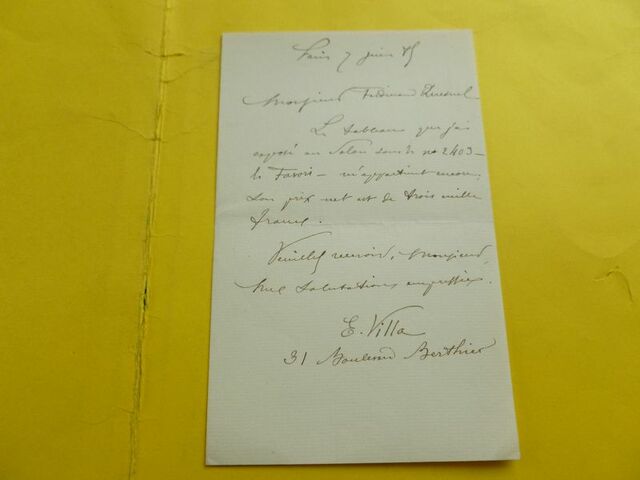 Paris 7 juin 85
Monsieur Ferdinand
Le tableau que j'ai
exposé au Salon sous le no 2403 -
le Favori - m'appartient encore,
son prix net est de trois mille
francs.
Veuillez recevoir, Monsieur,
mes salutations empressées.
E. Villa
31 Boulevard Berthier